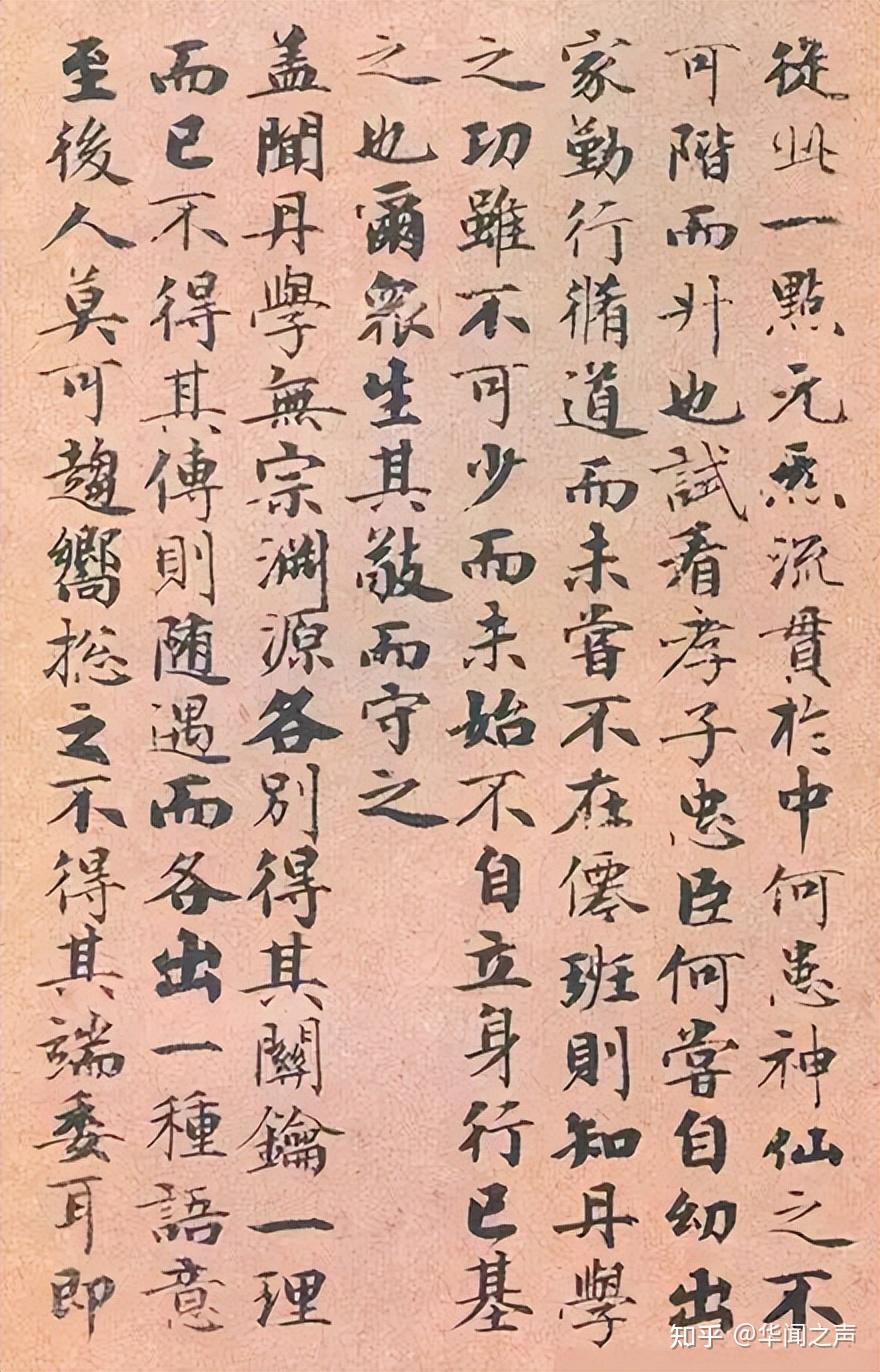 從此一點元炁流貫於中何患神仙之不
可階而升也試看孝子忠臣何嘗自幼出
家勤行脩道而未嘗不在僊班則知丹學
之功雖不可少而未始不自立身行已基
之也爾衆生其敬而守之
盖聞丹學無宗渊源各別得其關鑰一理
而已不得其傳則随遇而各出一種語意
至後人莫可趨嚮捴之不得其端委耳即
知乎 @华闻之声